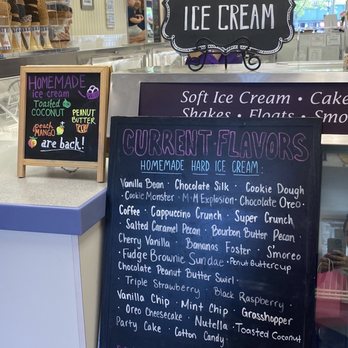 ICE CREAM
HOMEMADE
ice cream
Toasted
COCONUT
PEANUT
BUTTER
peach
MANGO
PIE
are back!
Soft Ice Cream • Cake
Shakes • Floats • Smo
CURRENT FLAVORS
HOMEMADE HARD ICE CREAM:
Vanilla Bean • Chocolate Silk • Cookie Dough
• Cookie Monster • M+M Explosion • Chocolate Oreo •
Coffee • Cappuccino Crunch • Super Crunch
Salted Caramel Pecan • Bourbon Butter Pecan
Cherry Vanilla • Bananas Foster • S'moreo
• Fudge Brownie Sundae • Peanut Buttercup
Chocolate Peanut Butter Swirl •
• Triple Strawberry • Black Raspberry •
Vanilla Chip • Mint Chip • Grasshopper
• Oreo Cheesecake • Nutella • Toasted Coconut
Party Cake • Cotton Candy •